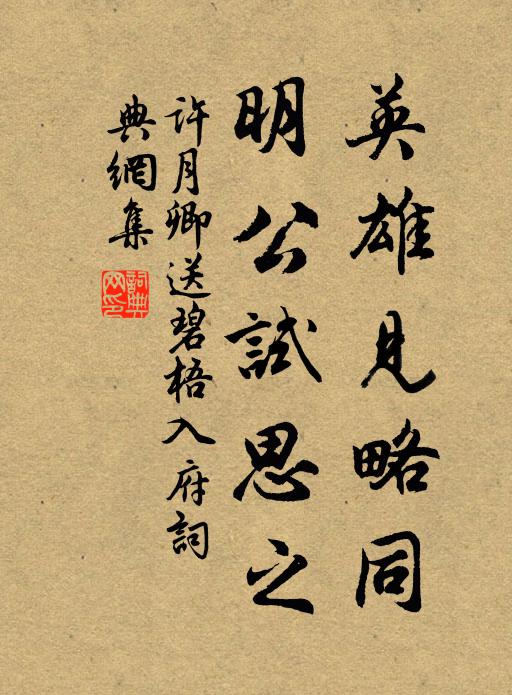 英雄見略同
明公試思之
許月卿送碧梧入府詞
典網集
詞典
网印